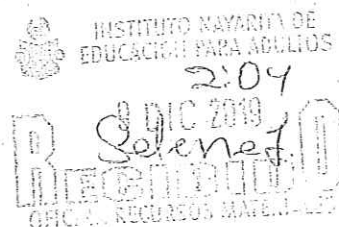 INSTITUTO NAYARITA DE
EDUCACIÓN PARA ADULTOS
2:04
9 DIC 2019
Selene
RECIBIDO
RECURSOS MATERIALES